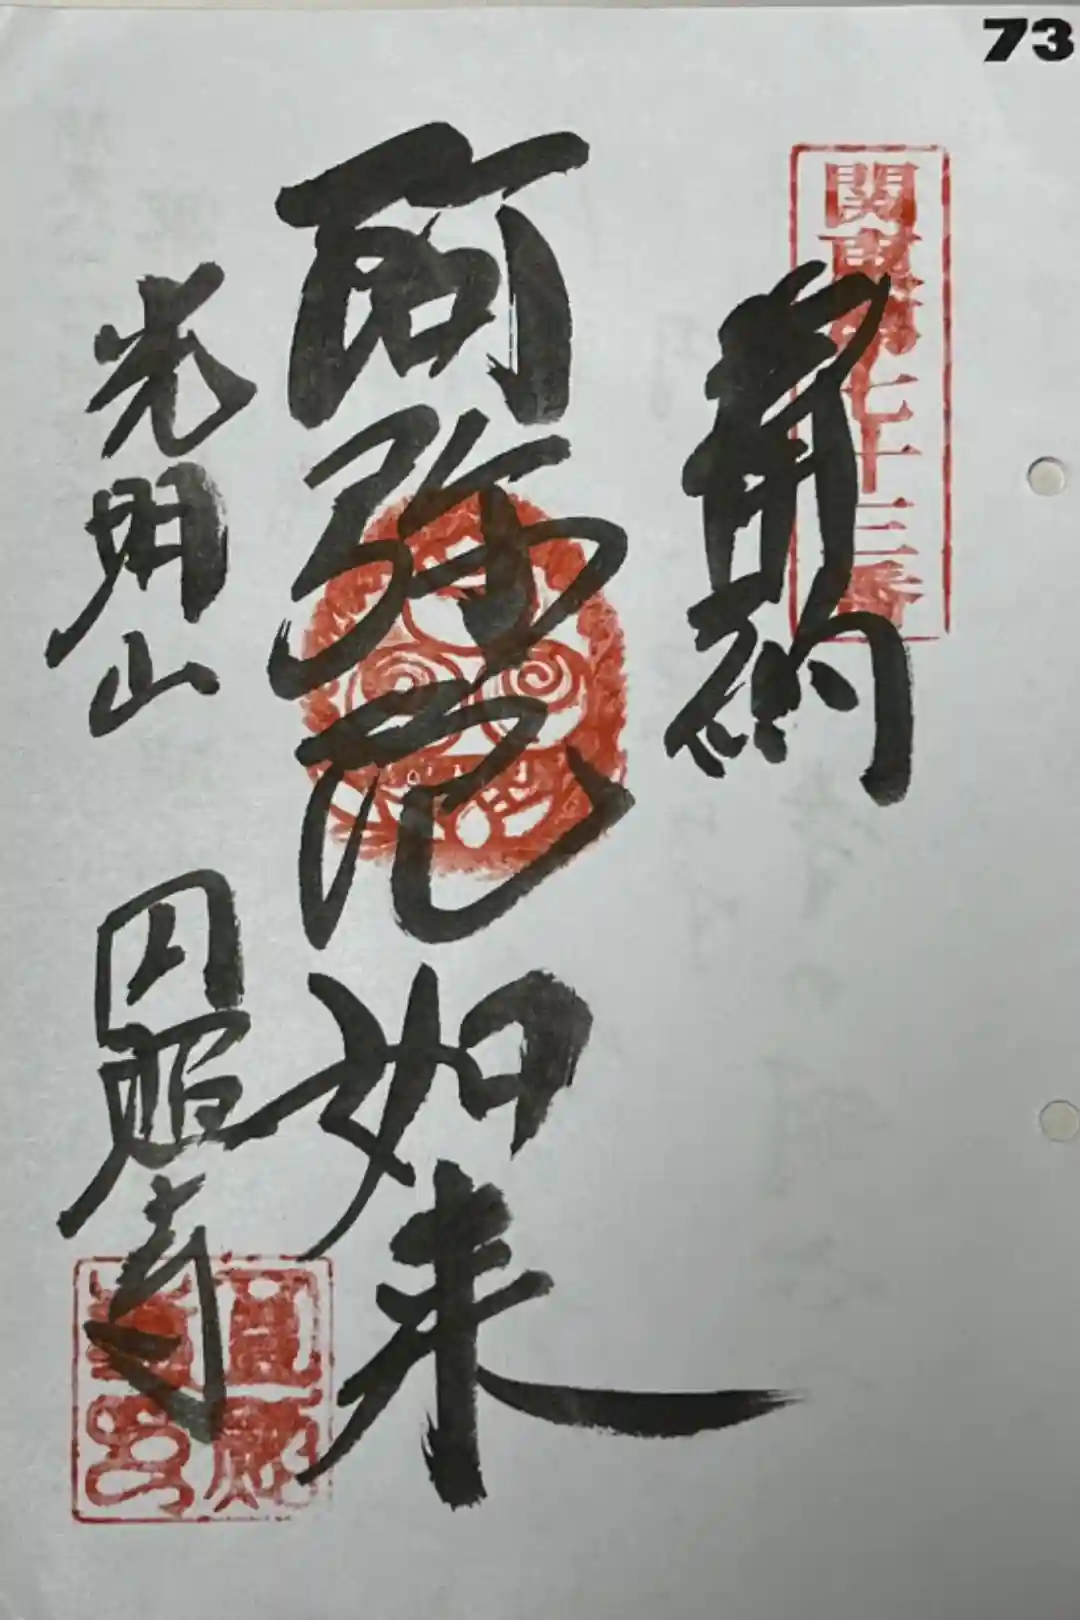 73
関東第七十三番
奉納
阿弥陀如来
光明山
円照寺